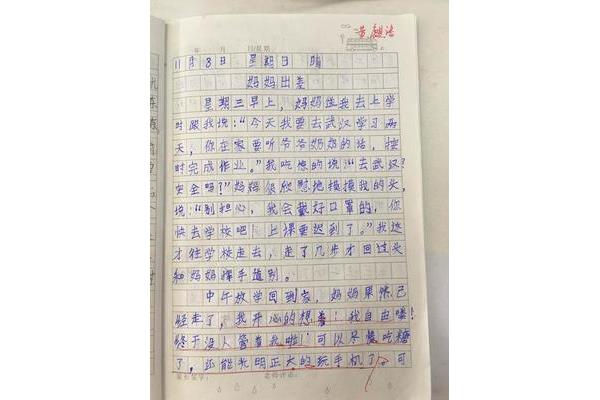 年 月 日 星期
11月8日 星期日 晴
妈妈出差
星期三早上，妈妈送我去上学
时跟我说：“今天我要去武汉学习两
天，你在家要听爷爷奶奶的话，按
时完成作业。”我吃惊的说：“去武汉？
安全吗？”妈妈很欣慰地摸摸我的头，
说：“别担心，我会戴好口罩的，你
快去学校吧 上课要迟到了。”我这
才往学校走去，走了几步才回过头
和妈妈挥手道别。
中午放学回到家，妈妈果然已
经走了，我开心的想着：我自由喽！
终于没人管着我啦！可以尽情吃糖
了，还能光明正大的玩手机了。可